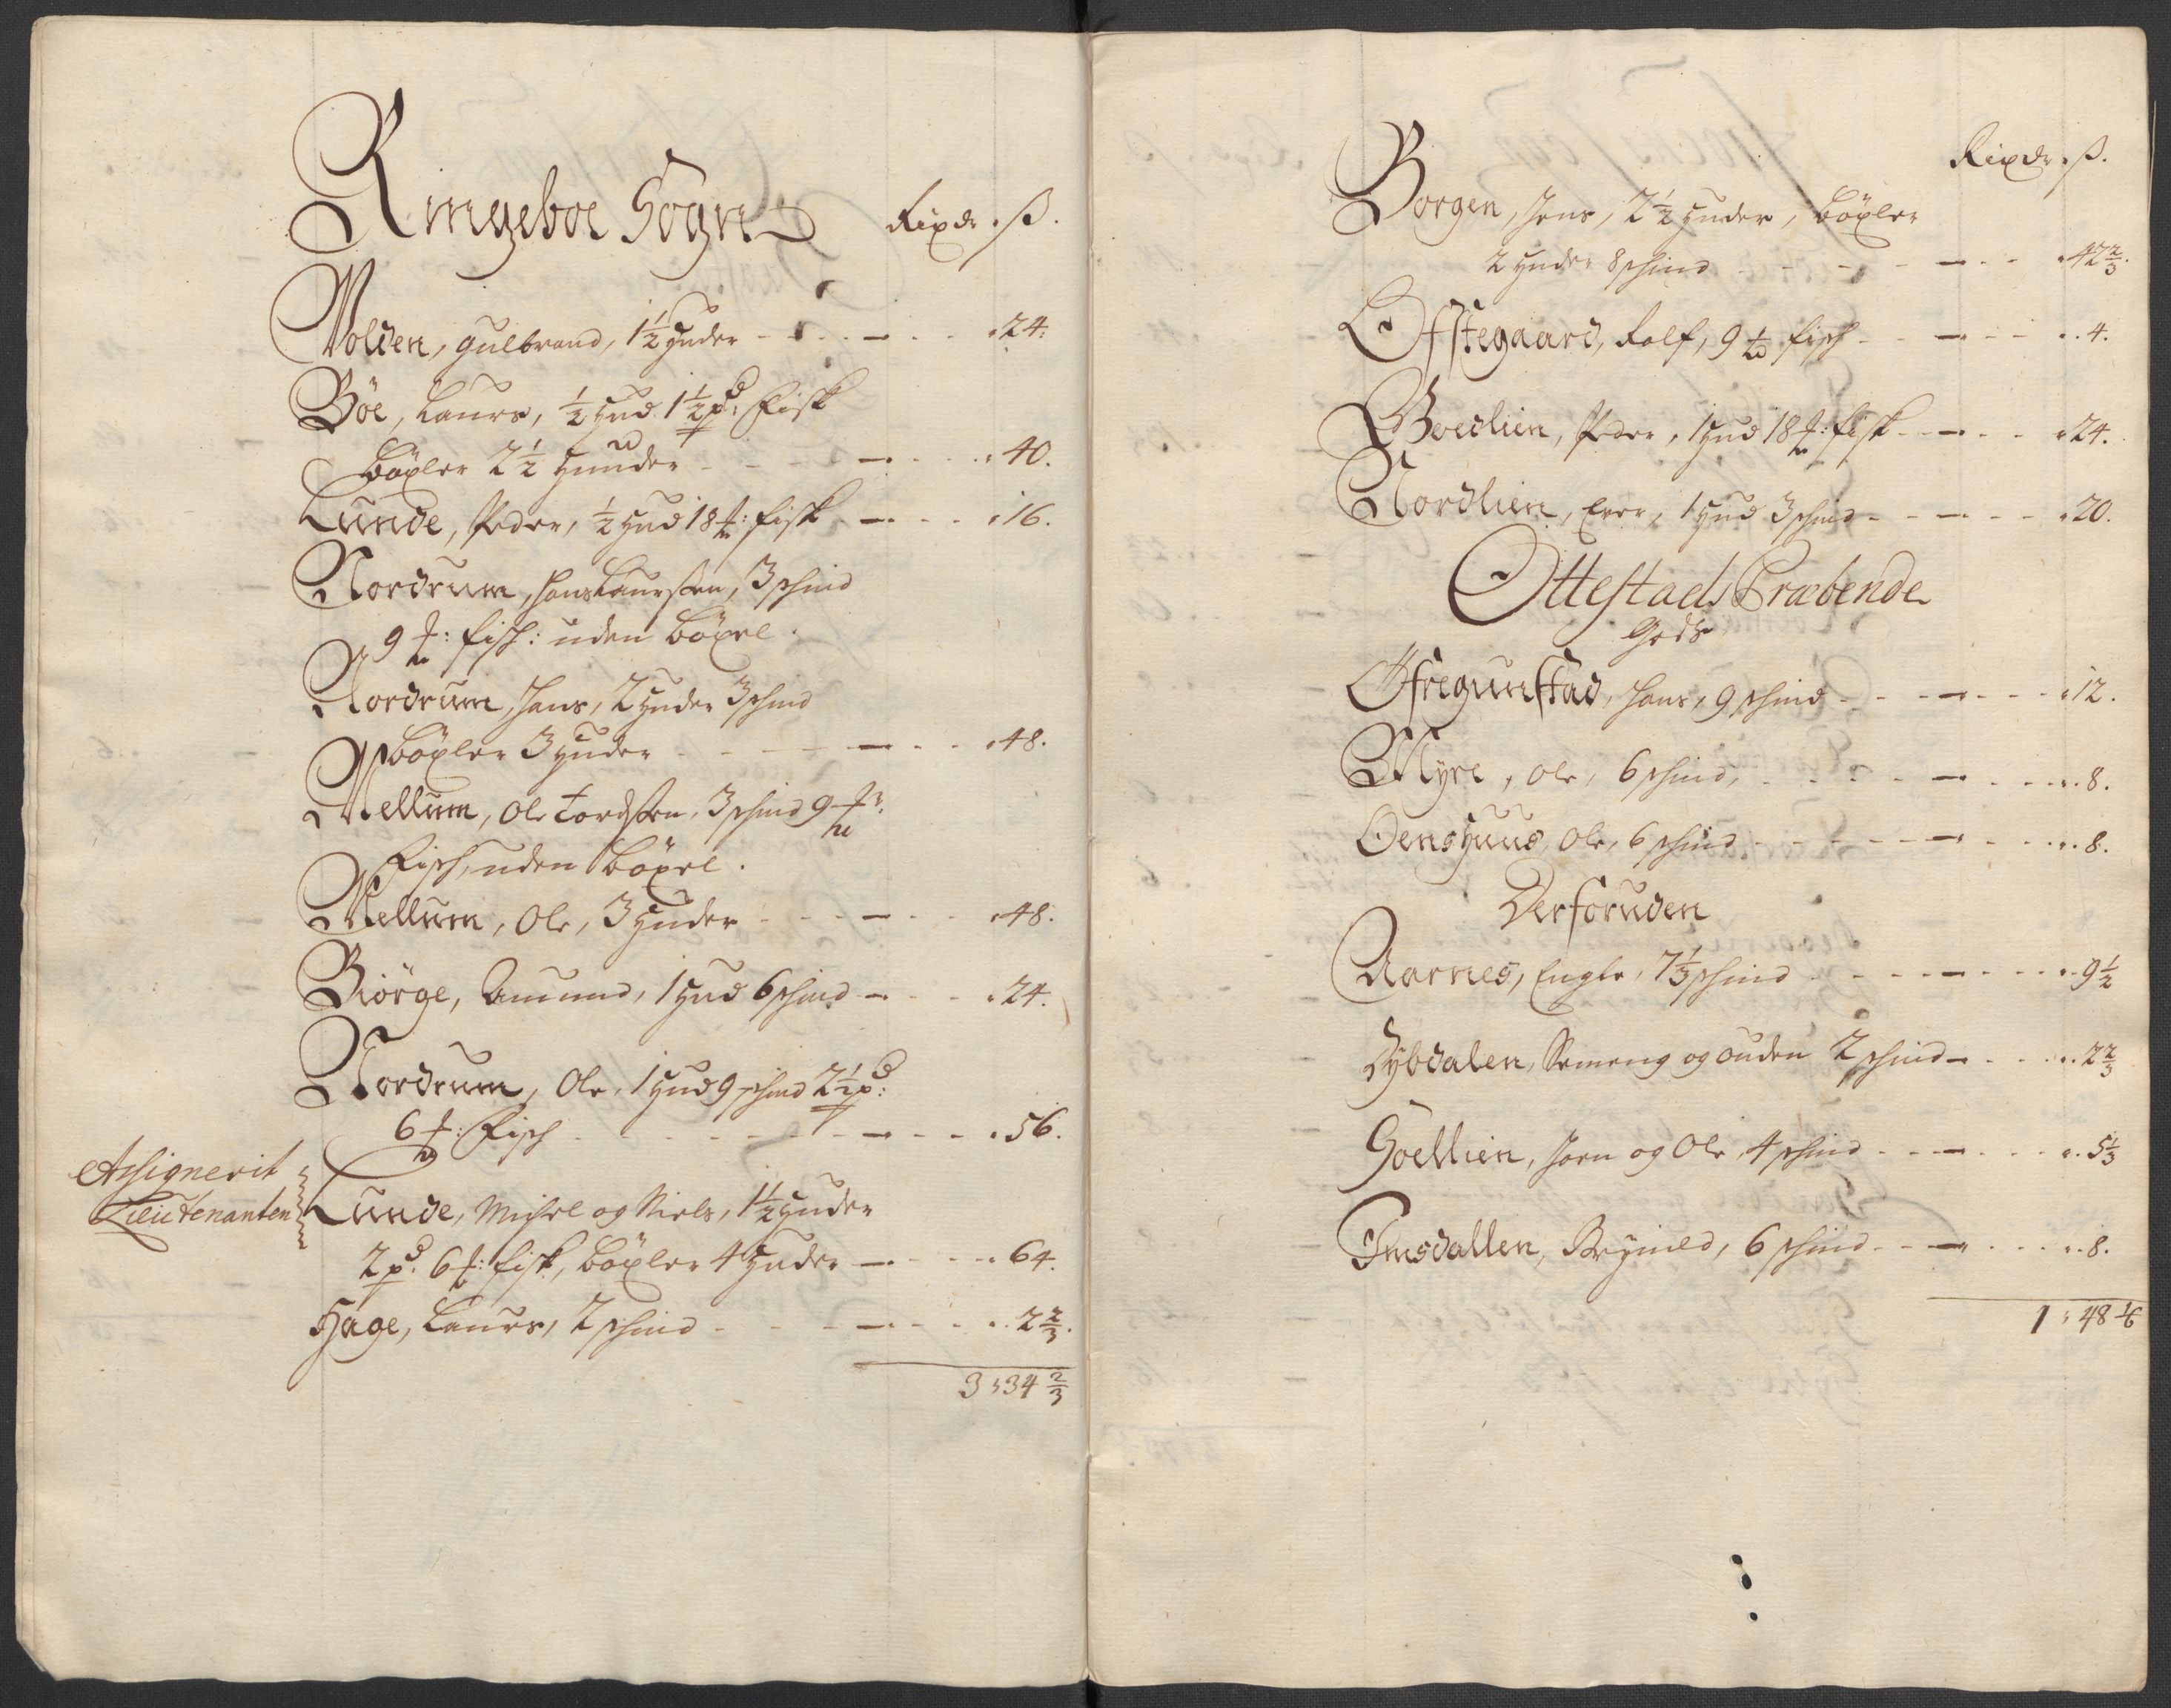 Ringeboe Sogn
Rixdr. ß.
Volden, Gulbrand, 1½ huder - - - 24.
Böe, Laurs, ½ hud 1½ pd: Fisk
böxler 2½ huuder - - - 40.
Lunde, Peder, ½ hud 18 ℔: fisk - - - 16.
Nordrum, Hans Laursen, 3 skind
9 ℔: fisk: uden böxel.
Nordrum, Hans, 2 huder 3 skind
böxler 3 huder - - - 48.
Mellum, Ole Tordsen, 3 skind 9 ℔:
Fisk, uden böxel.
Mellum, Ole, 3 huder - - - 48.
Biörge, Amund, 1 hud 6 skind - - - 24.
Nordrum, Ole, 1 hud 9 skind 2½ pd:
6 ℔: Fisk - - - 56.
Assignerit
Lieutenanten
Lunde, Michel og Niels, 1½ huder
2 pd. 6 ℔: fisk, böxler 4 huder - - - 64.
Hage, Laurs, 2 skind - - - 2⅔.
3 : 34⅔
Rixdr. ß.
Borgen, Jens, 2½ huder, böxler
2 huder 8 skind - - - 42⅔.
Ofstegaard, Rolf, 9 ℔ fisk - - - 4.
Boedlien, Peder, 1 hud 18 ℔: fisk - - - 24.
Nordlien, Ever, 1 hud 3 skind - - - 20.
Ottestads Præbende
Gods
Ofregunstad, Hans, 9 skind - - - 12.
Myre, Ole, 6 skind, - - - 8.
Oenshuus, Ole, 6 skind - - - 8.
Derforuden
Aarnes, Engle, 7⅓ skind - - - 9½
Dybdalen, Semeng og Ouden 2 skind - - - 2⅔
Goellien, Joen og Ole, 4 skind - - - 5⅓
Imsdallen, Bryneld, 6 skind - - - 8.
1 : 48⅙